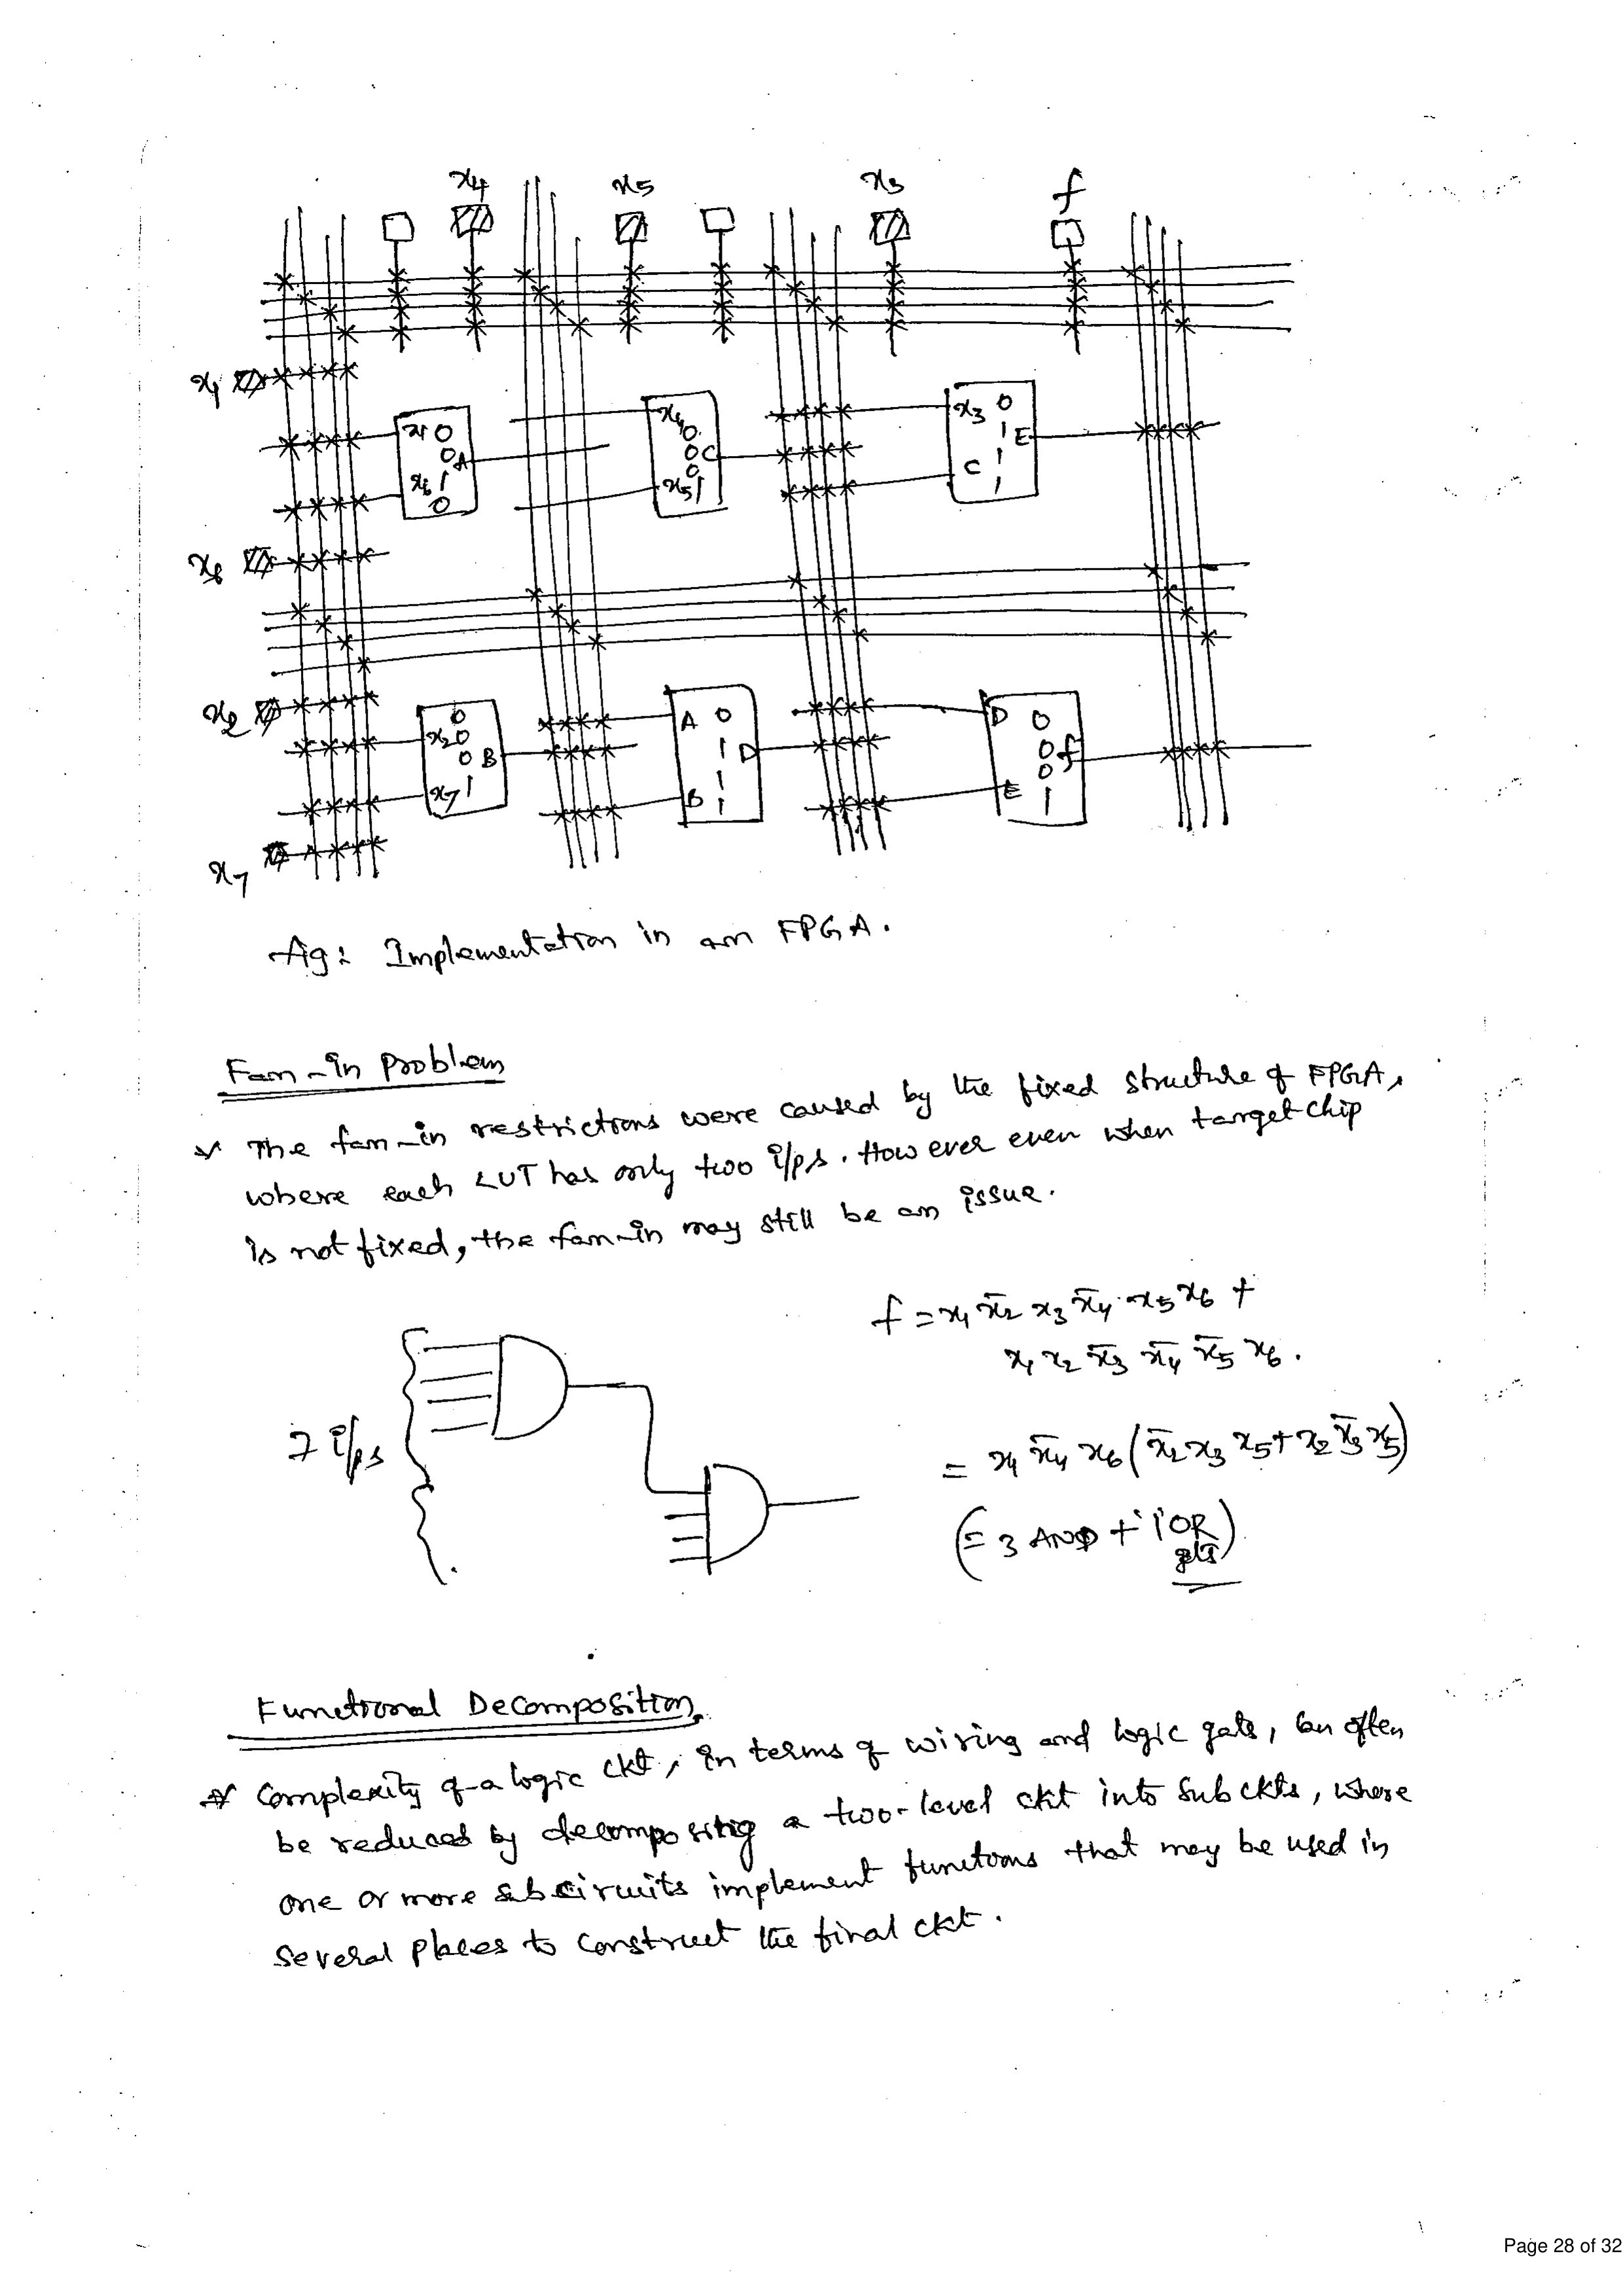 x4 x5 x3 f
x1
x1 0
0 A
x6 1
0
x4 0
0 C
0
x5 1
x3 0
1 E
1
C 1
x6
x2
0
x2 0
0 B
x7 1
A 0
1 D
1
B 1
D 0
0 f
0
E 1
x7
fig: Implementation in an FPGA.
Fan-in Problem
* The fan-in restrictions were caused by the fixed structure of FPGA,
where each LUT has only two i/ps. However even when target chip
is not fixed, the fan-in may still be an issue.
f = x1 x̄2 x3 x̄4 x5 x6 +
x1 x2 x̄3 x̄4 x̄5 x6.
7 i/ps
= x1 x̄4 x6 (x̄2 x3 x5 + x2 x̄3 x̄5)
(= 3 AND + 1 OR)
Functional Decomposition
* Complexity of a logic ckt, in terms of wiring and logic gate, can often
be reduced by decompositig a two-level ckt into subckts, where
one or more subcircuits implement functions that may be used in
several places to construct the final ckt.
Page 28 of 32